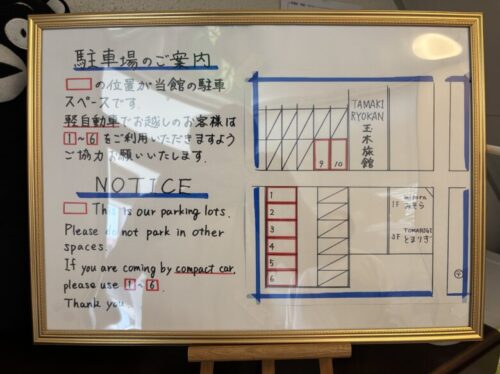 駐車場のご案内
の位置が当館の駐車
スペースです.
軽自動車でお越しのお客様は
1~6をご利用いただきますよう
ご協力お願いいたします.
NOTICE
This is our parking lots.
Please do not park in other
spaces.
If you are coming by compact car,
please use 1~6.
Thank you
TAMAKI
RYOKAN
玉木旅館
9 10
1
2
3
4
5
6
1F
みそら
TOMARIGI
とまりぎ